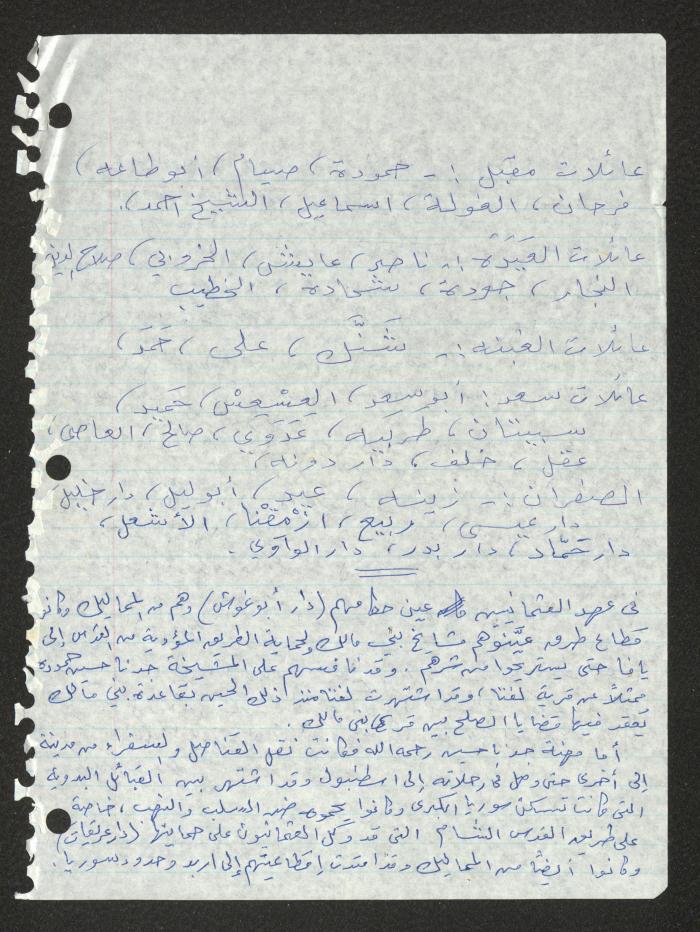 عائلات مقبل :- حمودة، صيام، أبو طاعه،
فرحان، الغولة، اسماعيل، الشيخ احمد،.
عائلات العَيَدَة :- ناصر، عايش، الخروبي، صلاح الدين
النجار، جودة، شحادة، الخطيب
عائلات الغبنه :- شَنَّك، علي، حَمَد،
عائلات سعد : أبو سعد، العِسْعِسْ، حَميد،
سبيتان، طربيه، عَدَوي، صالح، العاصي،
عقل، خلف، دار دونه،
الصفران :- زينه، عيد، أبو ليل، دار خليل
دار عيسى، ربيع، ازْمِقْنا، الأشعل،
دار حمّاد، دار بدر، دار الواوي.
في عهد العثمانيين عين حكامهم (دار أبو غوش) وهم من المماليك وكانوا
قطاع طرق عيَّنوهم مشايخ بني مالك ولحماية الطريق المؤدية من القدس إلى
يافا حتى يستريحوا من شرهم. وقد نافسهم على المشيخة جدنا حسين حمودة
ممثلاً عن قرية لفتا، وقد اشتهرت لفتا منذ ذلك الحين بقاعدة بني مالك
يُعقد فيها قضايا الصلح بين قرى بني مالك.
أما مهنة جدنا حسين رحمه الله فكانت نقل القناصل والسفراء من مدينة
إلى أخرى حتى وصل في رحلاته إلى اسطنبول وقد اشتهر بين القبائل البدوية
التي كانت تسكن سوريا الكبرى وكانوا يحموه من السلب والنهب، خاصة
على طريق القدس الشام التي قد وكل العثمانيون على حمايتها (دار عريقات)
وكانوا أيضاً من المماليك وقد امتدت إقطاعيتهم إلى اربد وحدود سوريا.